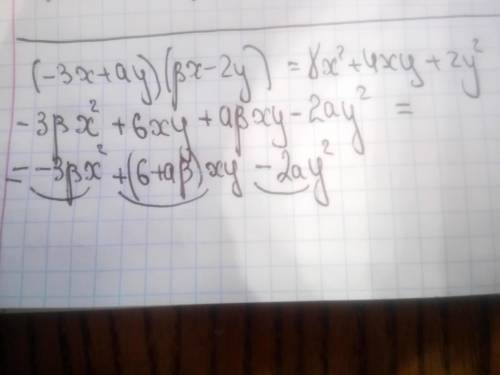 (-3x+ay)(βx-2y) = γx²+4xy+2y²
-3βx²+6xy+aβxy-2ay² =
= -3βx²+(6+aβ)xy-2ay²